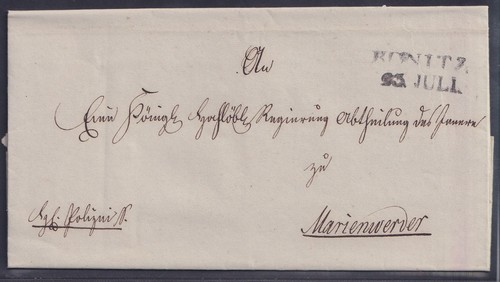 KONITZ
23. JULI
An
Eine Königl Hochlöbl Regierung Abtheilung des Innern
zu
Marienwerder